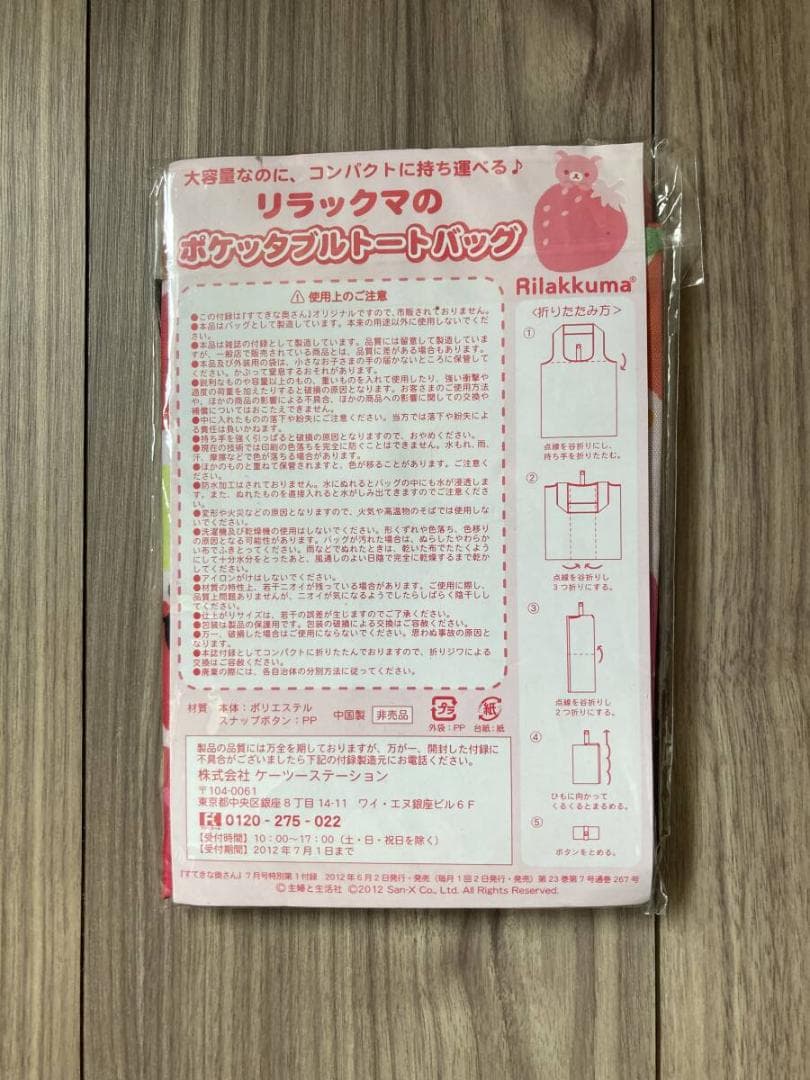 大容量なのに、コンパクトに持ち運べる♪
リラックマの
ポケッタブルトートバッグ
Rilakkuma®
⚠ 使用上のご注意
●この付録は『すてきな奥さん』オリジナルですので、市販されておりません。
●本品はバッグとして製造しています。本来の用途以外に使用しないでくだ
さい。
●本品は雑誌の付録として製造しています。品質には留意して製造していま
すが、一般店で販売されている商品とは、品質に差がある場合もあります。
●本品及び外装用の袋は、小さなお子さまの手の届かないところに保管して
ください。かぶって窒息するおそれがあります。
●鋭利なものや容量以上のもの、重いものを入れて使用したり、強い衝撃や
過度の荷重を加えたりすると破損の原因となります。お客さまのご使用方法
や、ほかの商品の影響による不具合、ほかの商品への影響に関しての交換や
補償についてはおこたえできません。
●中に入れたものの落下や紛失にご注意ください。当方では落下や紛失によ
る責任は負いかねます。
●持ち手を強く引っぱると破損の原因となりますので、おやめください。
●現在の技術では印刷の色落ちを完全に防ぐことはできません。水もれ、雨、
汗、摩擦などで色が落ちる場合があります。
●ほかのものと重ねて保管されますと、色が移ることがあります。ご注意く
ださい。
●防水加工はされておりません。水にぬれるとバッグの中にも水が浸透しま
す。また、ぬれたものを直接入れると水がしみ出てきますのでご注意くださ
い。
●変形や火災などの原因となりますので、火気や高温物のそばでは使用しな
いでください。
●洗濯機及び乾燥機の使用はしないでください。形くずれや色落ち、色移り
の原因となる可能性があります。バッグが汚れた場合は、ぬらしたやわらか
い布でふきとってください。雨などでぬれたときは、乾いた布でたたくよう
にして十分水分をとったあと、風通しのよい日陰で完全に乾燥するまで乾か
してください。
●アイロンがけはしないでください。
●材質の特性上、若干ニオイが残っている場合があります。ご使用に際し、
品質上問題ありませんが、ニオイが気になるようでしたらしばらく陰干しし
てください。
●仕上がりサイズは、若干の誤差が生じますのでご了承ください。
●包装は製品の保護用です。包装の破損による交換はご容赦ください。
●万一、破損した場合はご使用にならないでください。思わぬ事故の原因と
なります。
●本誌付録としてコンパクトに折りたたんでおりますので、折りジワによる
交換はご容赦ください。
●廃棄の際には、各自治体の分別方法に従ってください。
材質 本体：ポリエステル
スナップボタン：PP
中国製 非売品
プラ
外袋：PP
紙
台紙：紙
製品の品質には万全を期しておりますが、万が一、開封した付録に
不具合がございましたら下記の付録製造元にお電話ください。
株式会社 ケーツーステーション
〒104-0061
東京都中央区銀座8丁目14-11 ワイ・エヌ銀座ビル6F
0120-275-022
【受付時間】10：00～17：00（土・日・祝日を除く）
【受付期間】2012年7月1日まで
<折りたたみ方>
①
点線を谷折りにし、
持ち手を折りたたむ。
②
点線を谷折りし
3つ折りにする。
③
点線を谷折りし
2つ折りにする。
④
ひもに向かって
くるくるとまるめる。
⑤
ボタンをとめる。
『すてきな奥さん』7月号特別第1付録 2012年6月2日発行・発売（毎月1回2日発行・発売）第23巻第7号通巻267号
©主婦と生活社 ©2012 San-X Co., Ltd. All Rights Reserved.